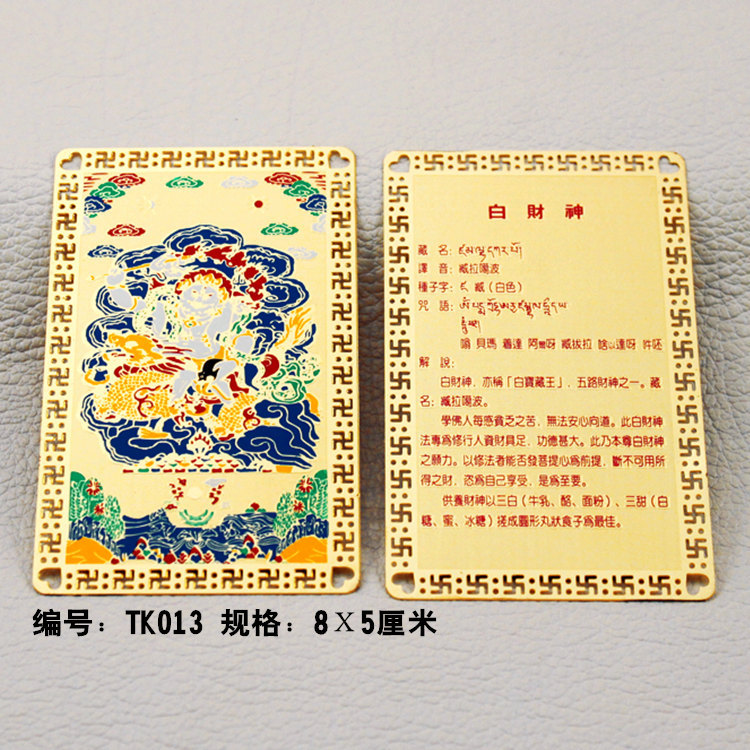 白財神
藏名:ཛམ་ལྷ་དཀར་པོ།
譯音:臧拉噶波
種子字:ཛ 臧(白色)
咒語:
解說:
白財神,亦稱「白寶藏王」,五路財神之一。藏
名:臧拉噶波。
學佛人每感貧乏之苦,無法安心向道。此白財神
法專為修行人資財具足,功德甚大。此乃本尊白財神
之願力。以修法者能否發菩提心為前提,斷不可用所
得之財,恣為自己享受,是為至要。
供養財神以三白(牛乳、酪、面粉)、三甜(白
糖、蜜、冰糖)搓成圓形丸狀食子為最佳。
编号:TK013 规格:8X5厘米